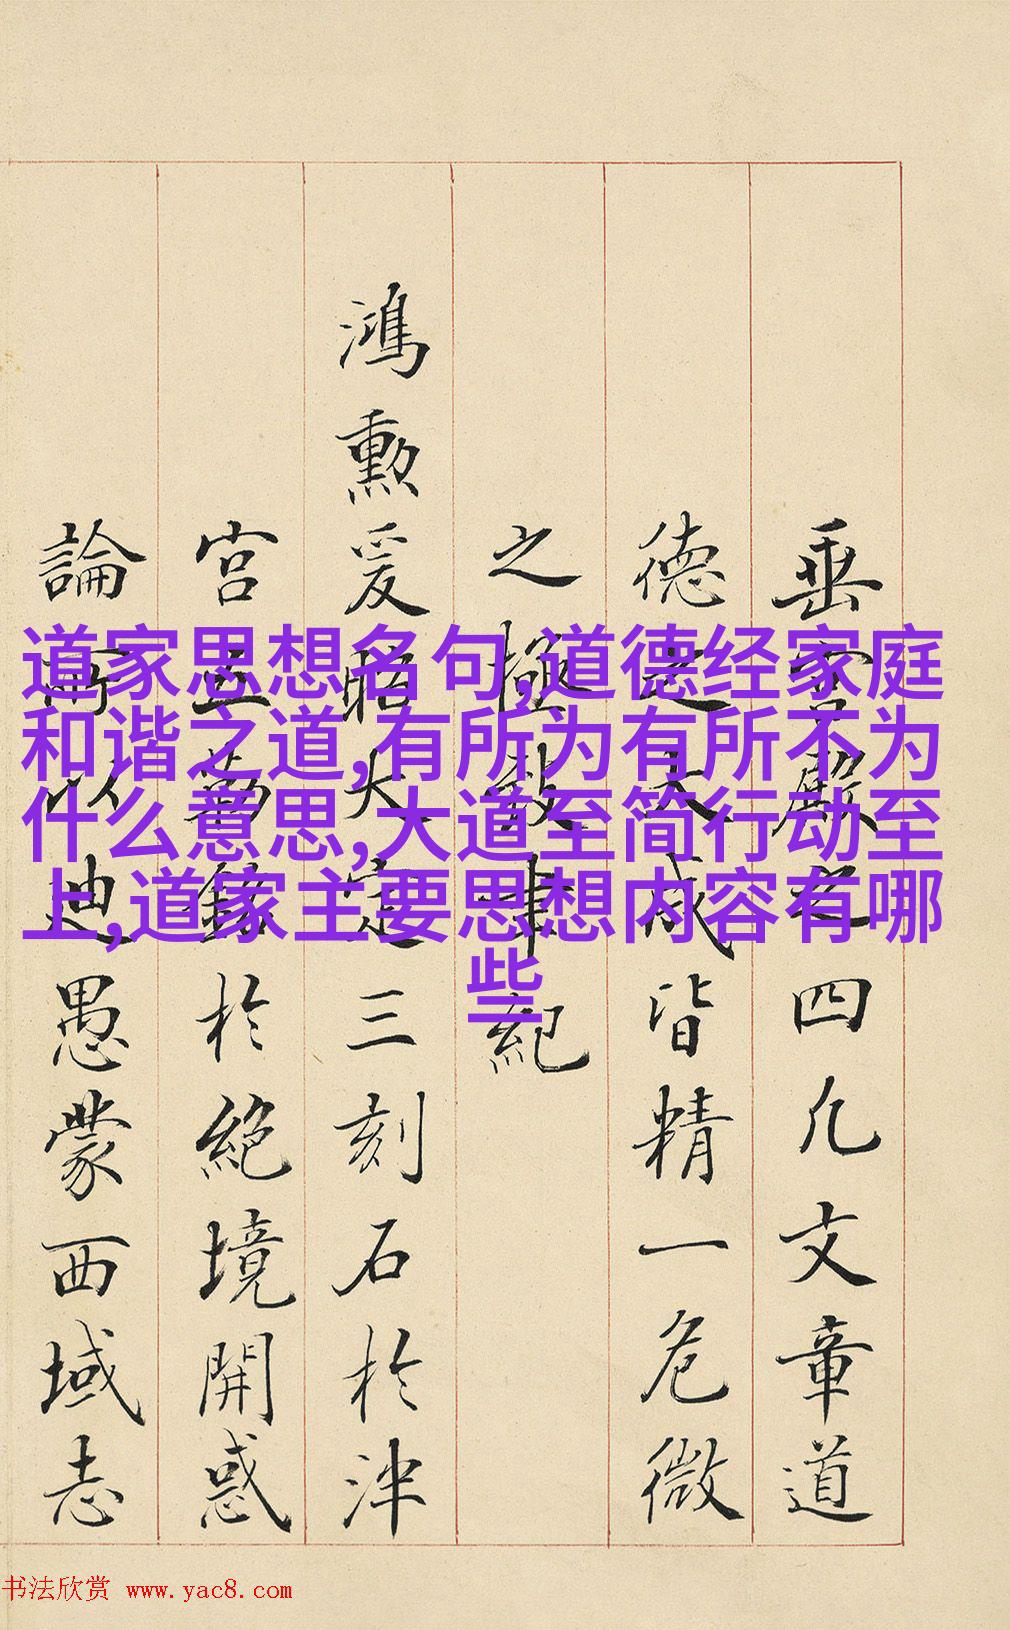 道家思想名句,道德经家庭
和谐之道,有所为有所不为
什么意思,大道至简行动至
上,道家主要思想内容有哪
些
垂殿四几文章道
德大成皆精一危微
之極肆紀
鴻勳爰昭大定三刻石於津
宮於絶境開惑
論再以迪愚蒙西域志
书法欣赏 www.yac8.com